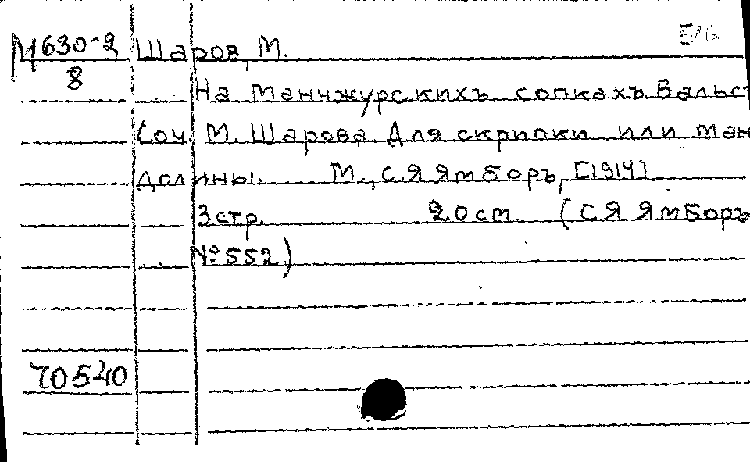 М630-2 Шаров, М.
8
На Манчжурскихъ сопкахъ. Вальс
Соч. М. Шарова. Для скрипки или Ман
долины. М., С.Я Ямборъ, [1914]
3 стр. 20 cm (С Я Ямборъ
№ 552)
70540